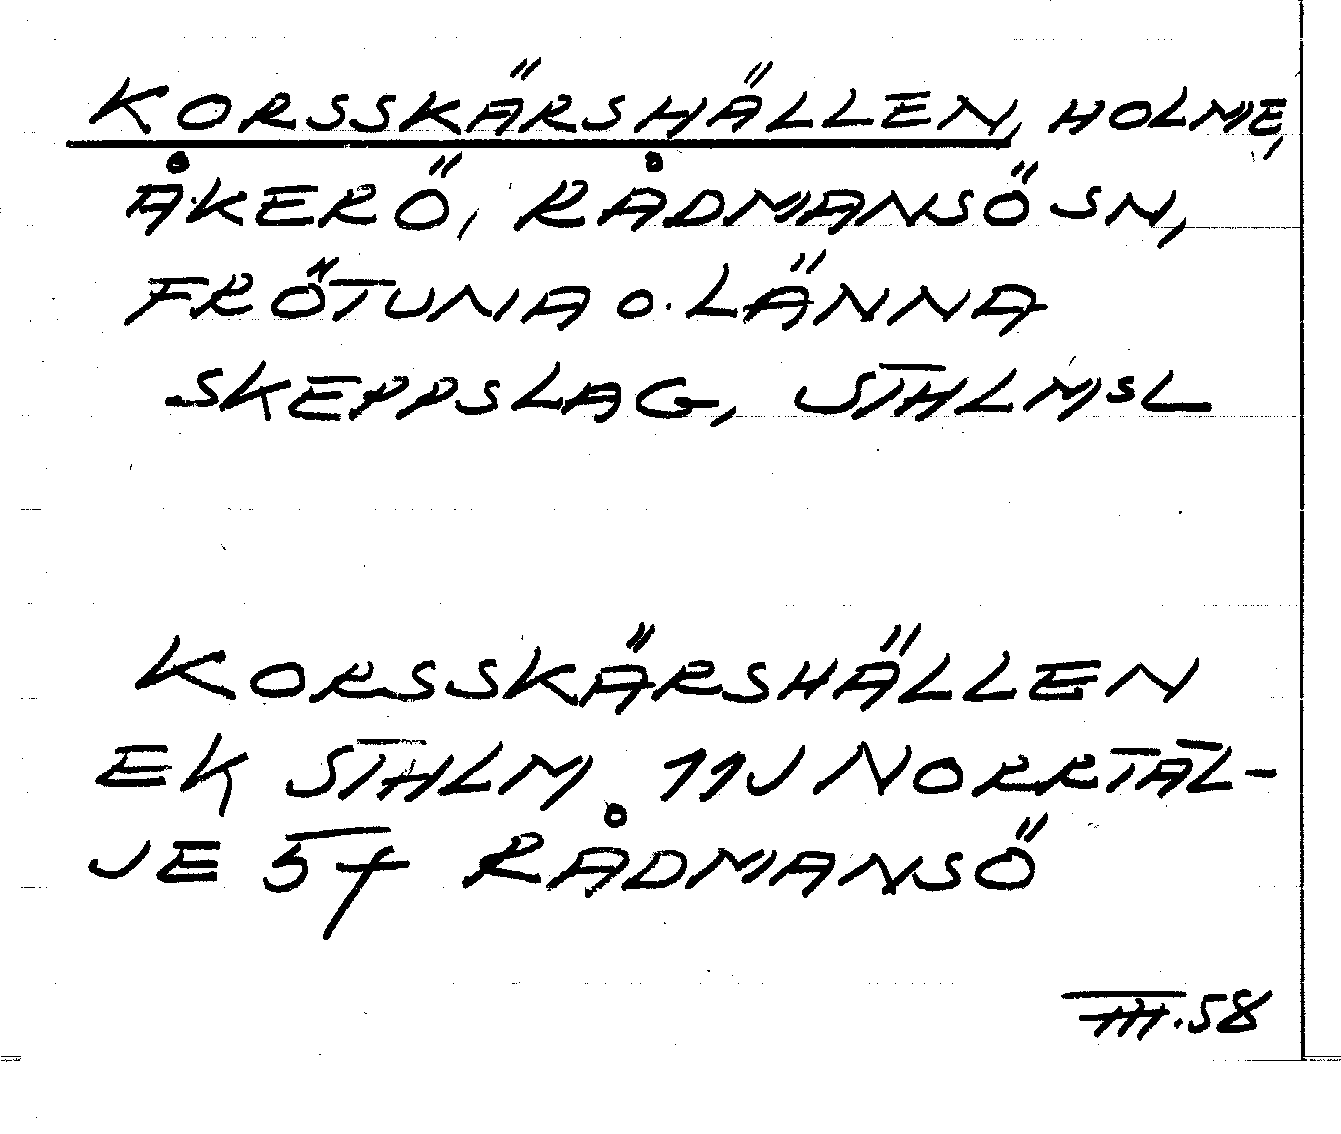 KORSSKÄRSHÄLLEN, HOLME,
ÅKERÖ, RÅDMANSÖ SN,
FRÖTUNA o. LÄNNA
SKEPPSLAG, STHLMSL
KORSSKÄRSHÄLLEN
EK STHLM 11J NORRTÄL-
JE 57 RÅDMANSÖ
.58